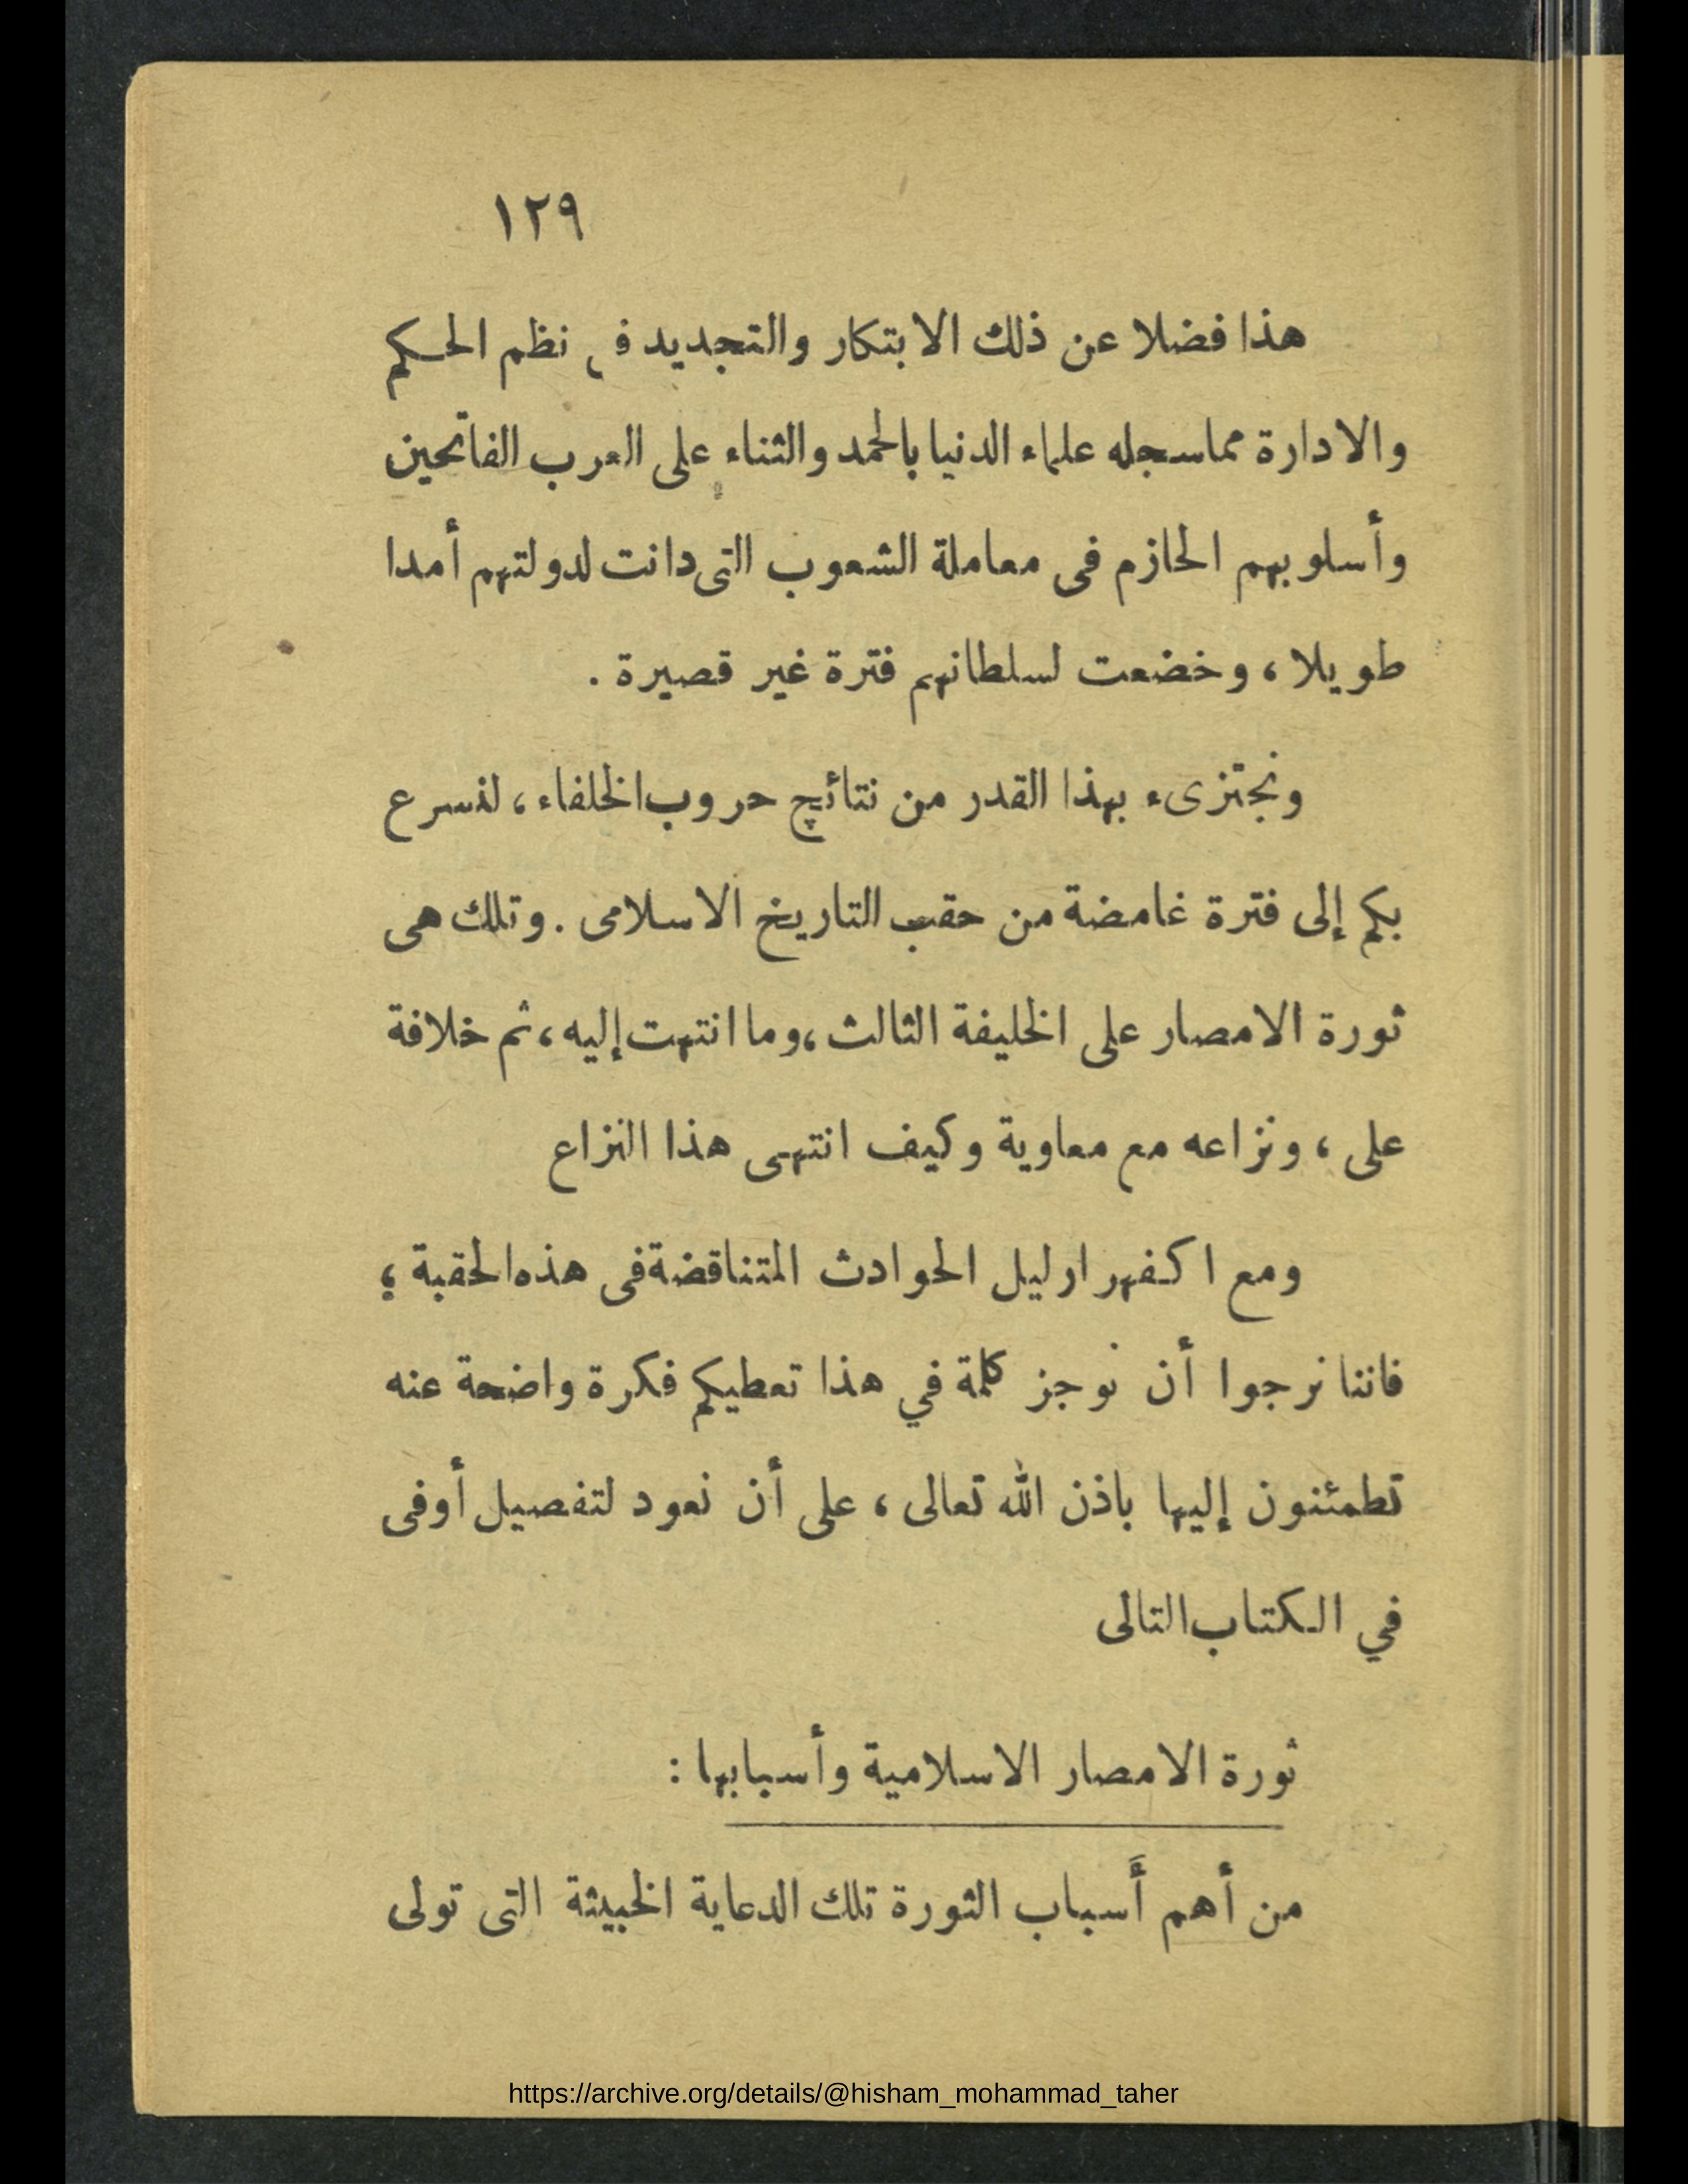 ١٢٩
هذا فضلا عن ذلك الابتكار والتجديد في نظم الحكم
والادارة مما سجله علماء الدنيا بالحمد والثناء على العرب الفاتحين
وأسلوبهم الحازم فى معاملة الشعوب التى دانت لدولتهم أمدا
طويلا ، وخضعت لسلطانهم فترة غير قصيرة .
ونجتزىء بهذا القدر من نتائج حروب الخلفاء ، لنسرع
بكم إلى فترة غامضة من حقب التاريخ الاسلامى . وتلك هى
ثورة الامصار على الخليفة الثالث ، وما انتهت إليه ، ثم خلافة
على ، ونزاعه مع معاوية وكيف انتهى هذا النزاع
ومع اكفهرار ليل الحوادث المتناقضة فى هذه الحقبة ؛
فاننا نرجوا أن نوجز كلمة في هذا تعطيكم فكرة واضحة عنه
تطمئنون إليها باذن الله تعالى ، على أن نعود لتفصيل أوفى
في الكتاب التالى
ثورة الامصار الاسلامية وأسبابها :
من أهم أَسباب الثورة تلك الدعاية الخبيثة التى تولى
https://archive.org/details/@hisham_mohammad_taher